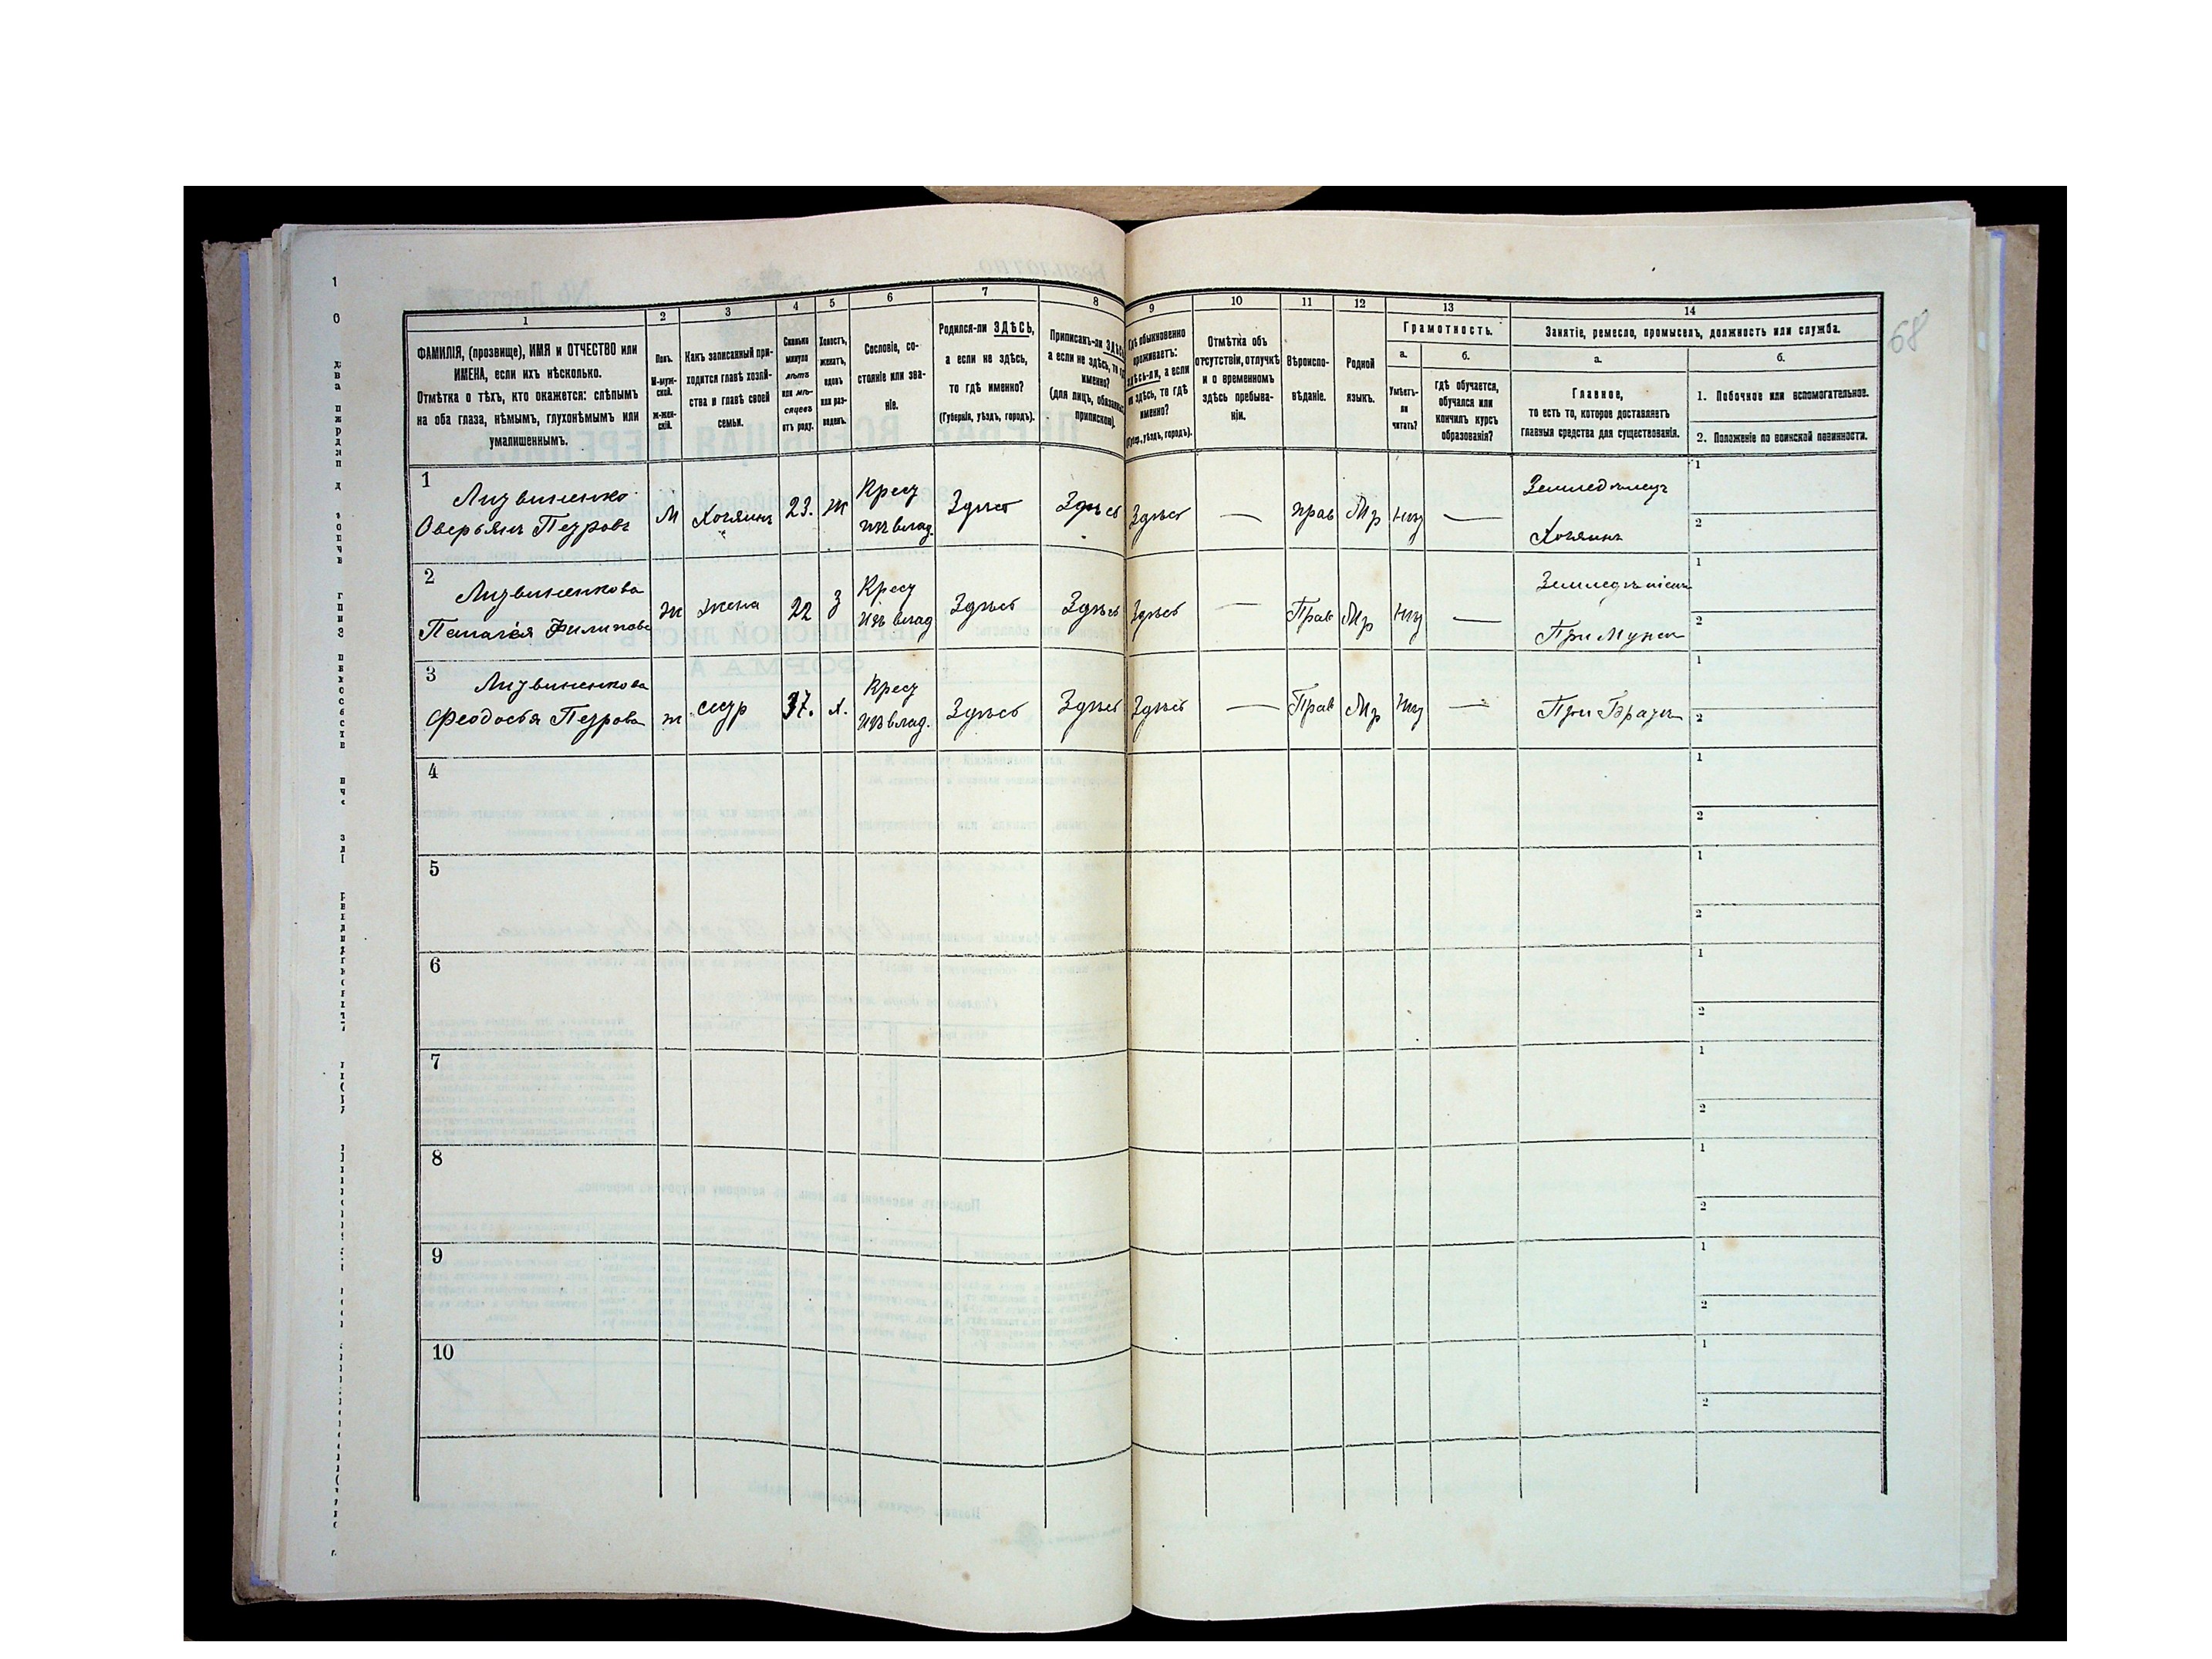 68
1
2
3
4
5
6
7
8
9
10
11
12
13
14
ФАМИЛІЯ, (прозвище), ИМЯ и ОТЧЕСТВО или
ИМЕНА, если ихъ нѣсколько.
Отмѣтка о тѣхъ, кто окажется: слѣпымъ
на оба глаза, нѣмымъ, глухонѣмымъ или
умалишеннымъ.
Полъ.
М-муж-
ской.
Ж-жен-
скій.
Какъ записанный при-
ходится главѣ хозяй-
ства и главѣ своей
семьи.
Сколько
минуло
лѣтъ
или мѣ-
сяцевъ
отъ роду.
Холостъ,
женатъ,
вдовъ
или раз-
веденъ.
Сословіе, со-
стояніе или зва-
ніе.
Родился-ли ЗДѢСЬ,
а если не здѣсь,
то гдѣ именно?
(Губернія, уѣздъ, городъ).
Приписанъ-ли ЗДѢСЬ,
а если не здѣсь, то гдѣ
именно?
(для лицъ, обязанныхъ
припискою).
Гдѣ обыкновенно
проживаетъ:
здѣсь-ли, а если
не здѣсь, то гдѣ
именно?
(Губер., уѣздъ, городъ).
Отмѣтка объ
отсутствіи, отлучкѣ
и о временномъ
здѣсь пребыва-
ніи.
Вѣроиспо-
вѣданіе.
Родной
языкъ.
Грамотность.
а.
Умѣетъ-
ли
читать?
б.
гдѣ обучается,
обучался или
кончилъ курсъ
образованія?
Занятіе, ремесло, промыселъ, должность или служба.
а.
Главное,
то есть то, которое доставляетъ
главныя средства для существованія.
б.
1. Побочное или вспомогательное.
2. Положеніе по воинской повинности.
1
Литвиненко
Оверьянъ Петровъ
М
Хозяинъ
23.
ж
Крест
изъ влад.
Здѣсь
Здѣсь
Здѣсь
—
прав
Мр
нѣт
—
Земледѣлецъ
Хозяинъ
1
2
2
Литвиненкова
Пелагія Филипова
ж
жена
22
З
Крест
Изъ влад
Здѣсь
Здѣсь
Здѣсь
—
Прав
Мр
Нѣт
—
При Мужѣ
1
2
3
Литвиненкова
Феодосья Петрова
ж
сестр
37.
х.
Крест
изъ влад.
Здѣсь
Здѣсь
Здѣсь
—
Прав
Мр
Нѣт
—
При Братѣ
1
2
4
1
2
5
1
2
6
1
2
7
1
2
8
1
2
9
1
2
10
1
2